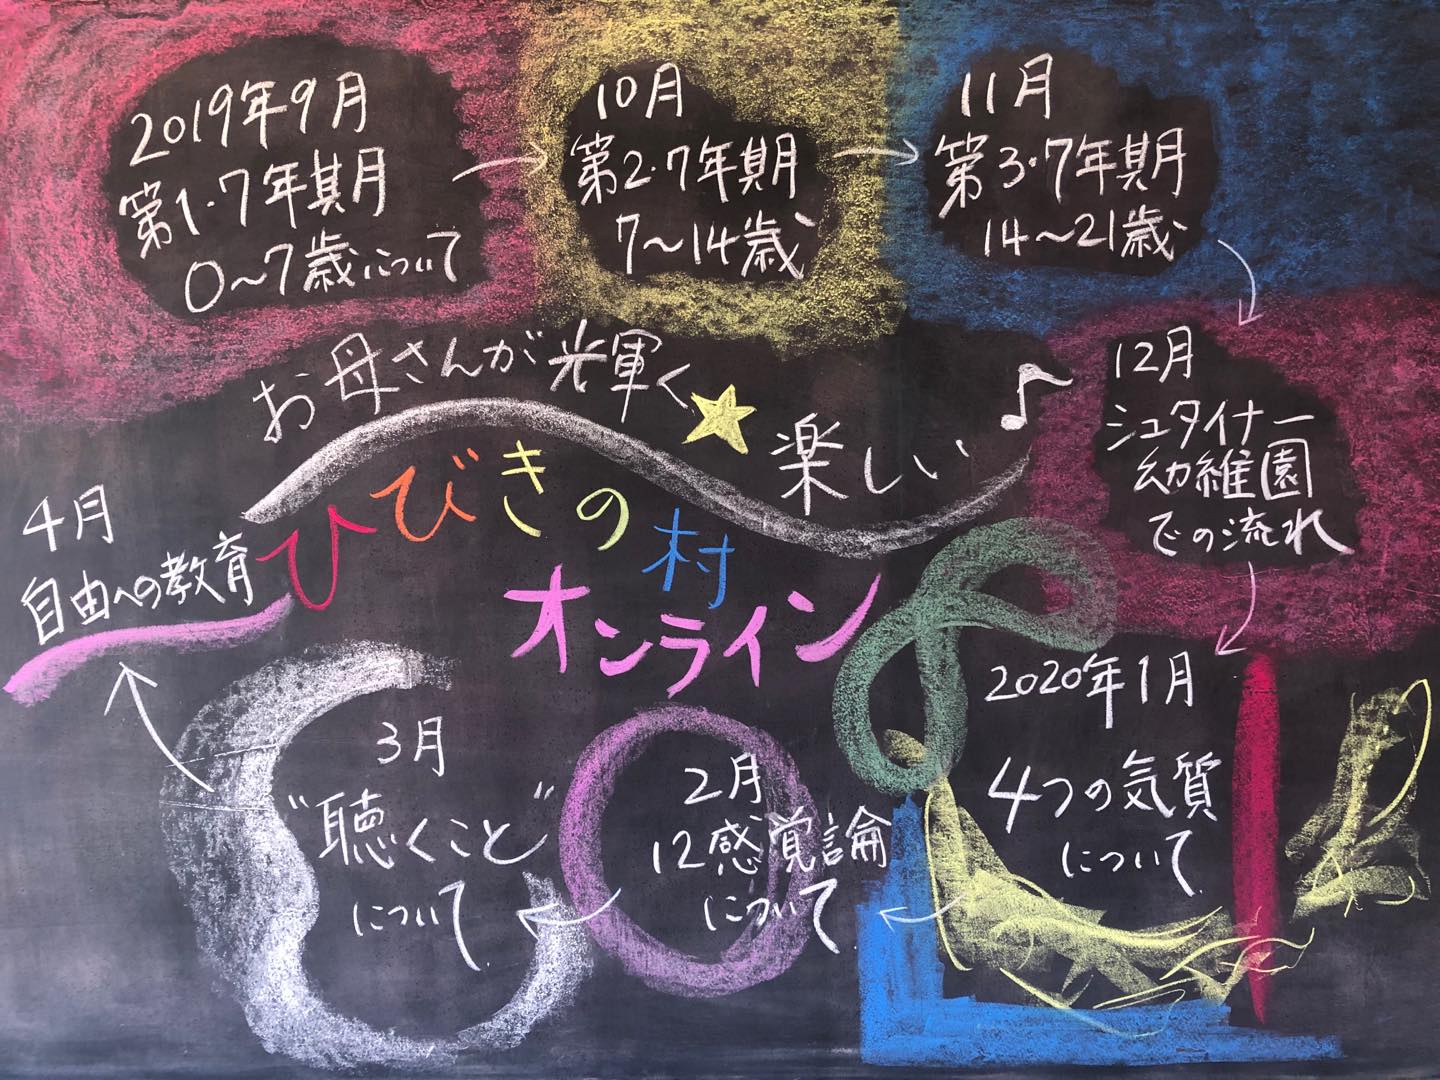 2019年9月
第1・7年期月
0〜7歳について
10月
第2・7年期
7〜14歳
11月
第3・7年期
14〜21歳
12月
シュタイナー
幼稚園
での流れ
お母さんが光輝く
楽しい
ひびきの村
オンライン
2020年1月
4つの気質
について
2月
12感覚論
について
3月
"聴くこと"
について
4月
自由への教育